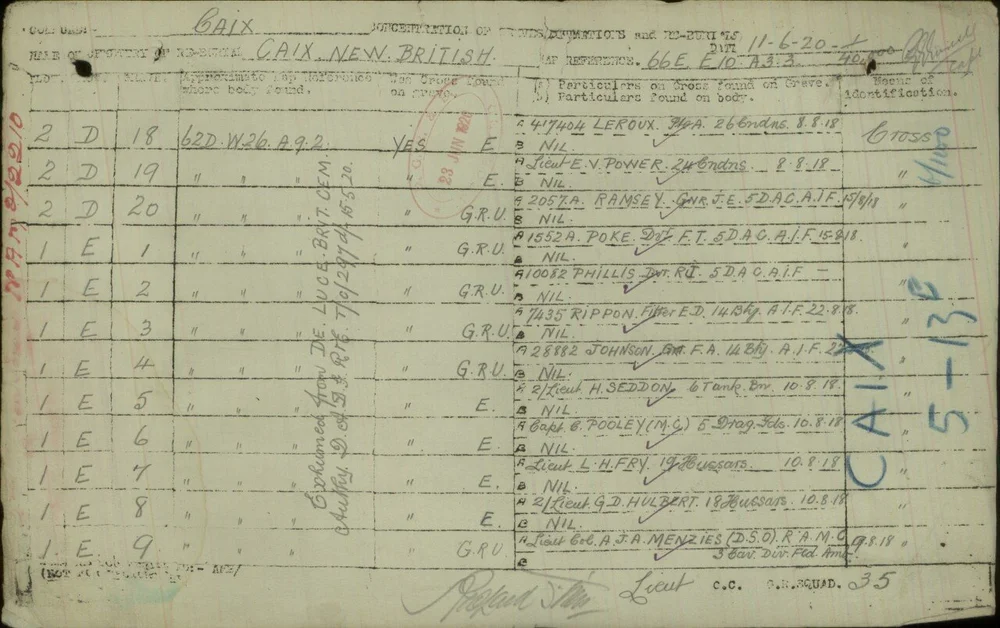 CAIX CONCENTRATION OF GRAVES (EXHUMATIONS and RE-BURIALS)
NAME OF CEMETERY OF RE-BURIAL CAIX NEW BRITISH. DATE 11-6-20
MAP REFERENCE. 66E E10 A3.3
Approximate Map Reference where body found. Was Cross found on grave. (A) Particulars on Cross found on Grave. (B) Particulars found on body. Means of identification.
2 D 18 62D. W26. A 9.2 YES E A 417404 LEROUX. 26 Cndns. 8.8.18 Cross
B NIL.
2 D 19 " " " " E. A Lieut E.V. POWER. 24 Cndns. 8.8.18 "
B NIL.
2 D 20 " " " " G.R.U. A 2057A. RAMSEY GNR. J.E. 5 D.A.C. A.I.F. 15/8/18 "
B NIL.
1 E 1 " " " " G.R.U. A 1552A. POKE Dvr F.T. 5 D.A.C. A.I.F 15.8.18. "
B NIL.
1 E 2 " " " " G.R.U. A 10082 PHILLIS Dvr. R.J. 5 D.A.C. A.I.F — "
B NIL.
1 E 3 " " " " G.R.U. A 7435 RIPPON. Fitter E.D. 14 Bty. A.I.F. 22.8.18. "
B NIL.
1 E 4 " " " " G.R.U. A 28882 JOHNSON. Gnr F.A. 14 Bty. A.I.F. "
B NIL.
1 E 5 " " " " E. A 2/Lieut H. SEDDON 6 Tank Bn. 10.8.18. "
B NIL.
1 E 6 " " " " E. A Capt C. POOLEY (M.C) 5 Drag. Gds. 10.8.18 "
B NIL.
1 E 7 " " " " E. A Lieut L.H. FRY. 19 Hussars. 10.8.18 "
B NIL.
1 E 8 " " " " E. A 2/Lieut G.D. HULBERT. 18 Hussars. 10.8.18 "
B NIL.
1 E. 9 " " " " G.R.U A Lieut Col. A.J.A. MENZIES (D.S.O). R.A.M.C 9.8.18 "
B 3 Cav. Div. Fld. Amb.
Exhumed from DE LUCE BRIT. CEM.
Authy. D.G.R. & E. 15.5.20.
23 JUN 1920
CAIX
5-13E
Lieut C.C. G.R. SQUAD. 35